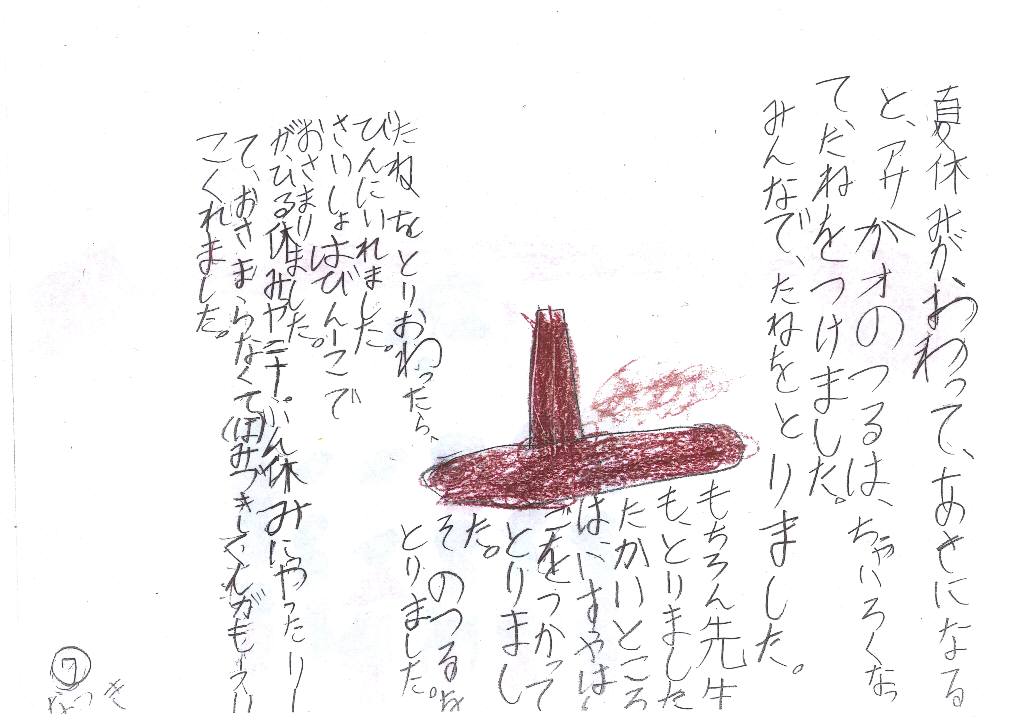 夏休みがおわって、あきになる
と、アサガオのつるは、ちゃいろくなっ
て、たねをつけました。
みんなで、たねをとりました。
もちろん先生
も、とりました
たかいところ
は、いすやはし
ごをつかって
とりまし
た。
そのつるを
とりました。
たねをとりおわったら、
びんにいれました。
さいしょはびん一こで
おさまりました。
が、ひる休みや二十ぷん休みにやったりし
て、おさまらなくてほみづきしてくんがもう
こくれました。
7
なつき